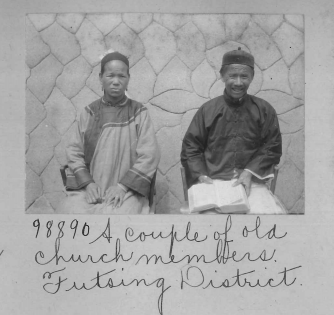 98890 A couple of old
church members.
Futsing District.